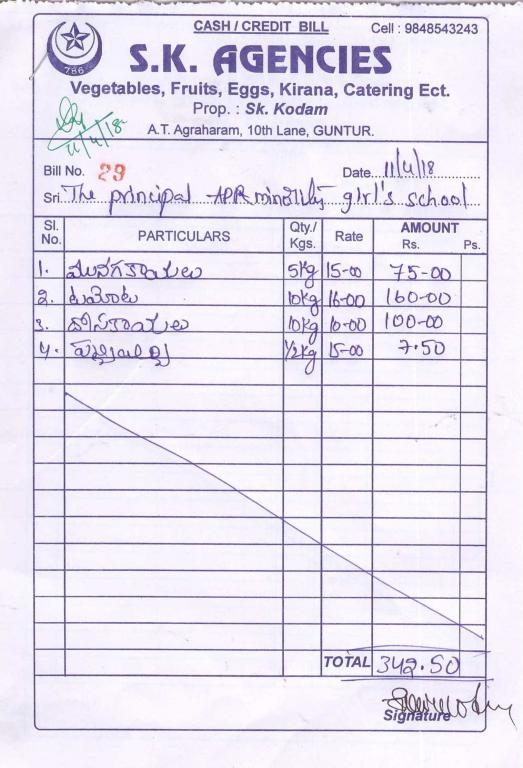 CASH / CREDIT BILL Cell : 9848543243
786
S.K. AGENCIES
Vegetables, Fruits, Eggs, Kirana, Catering Ect.
Prop. : Sk. Kodam
A.T. Agraharam, 10th Lane, GUNTUR.
11/4/18
Bill No. 29 Date 11/4/18
Sri The principal APR minority girl's school
Sl. No. PARTICULARS Qty./ Kgs. Rate AMOUNT Rs. Ps.
1. మునగకాయలు 5kg 15-00 75-00
2. టమోటా 10kg 16-00 160-00
3. దోసకాయలు 10kg 10-00 100-00
4. 1/2kg 15-00 7.50
TOTAL 342.50
Signature